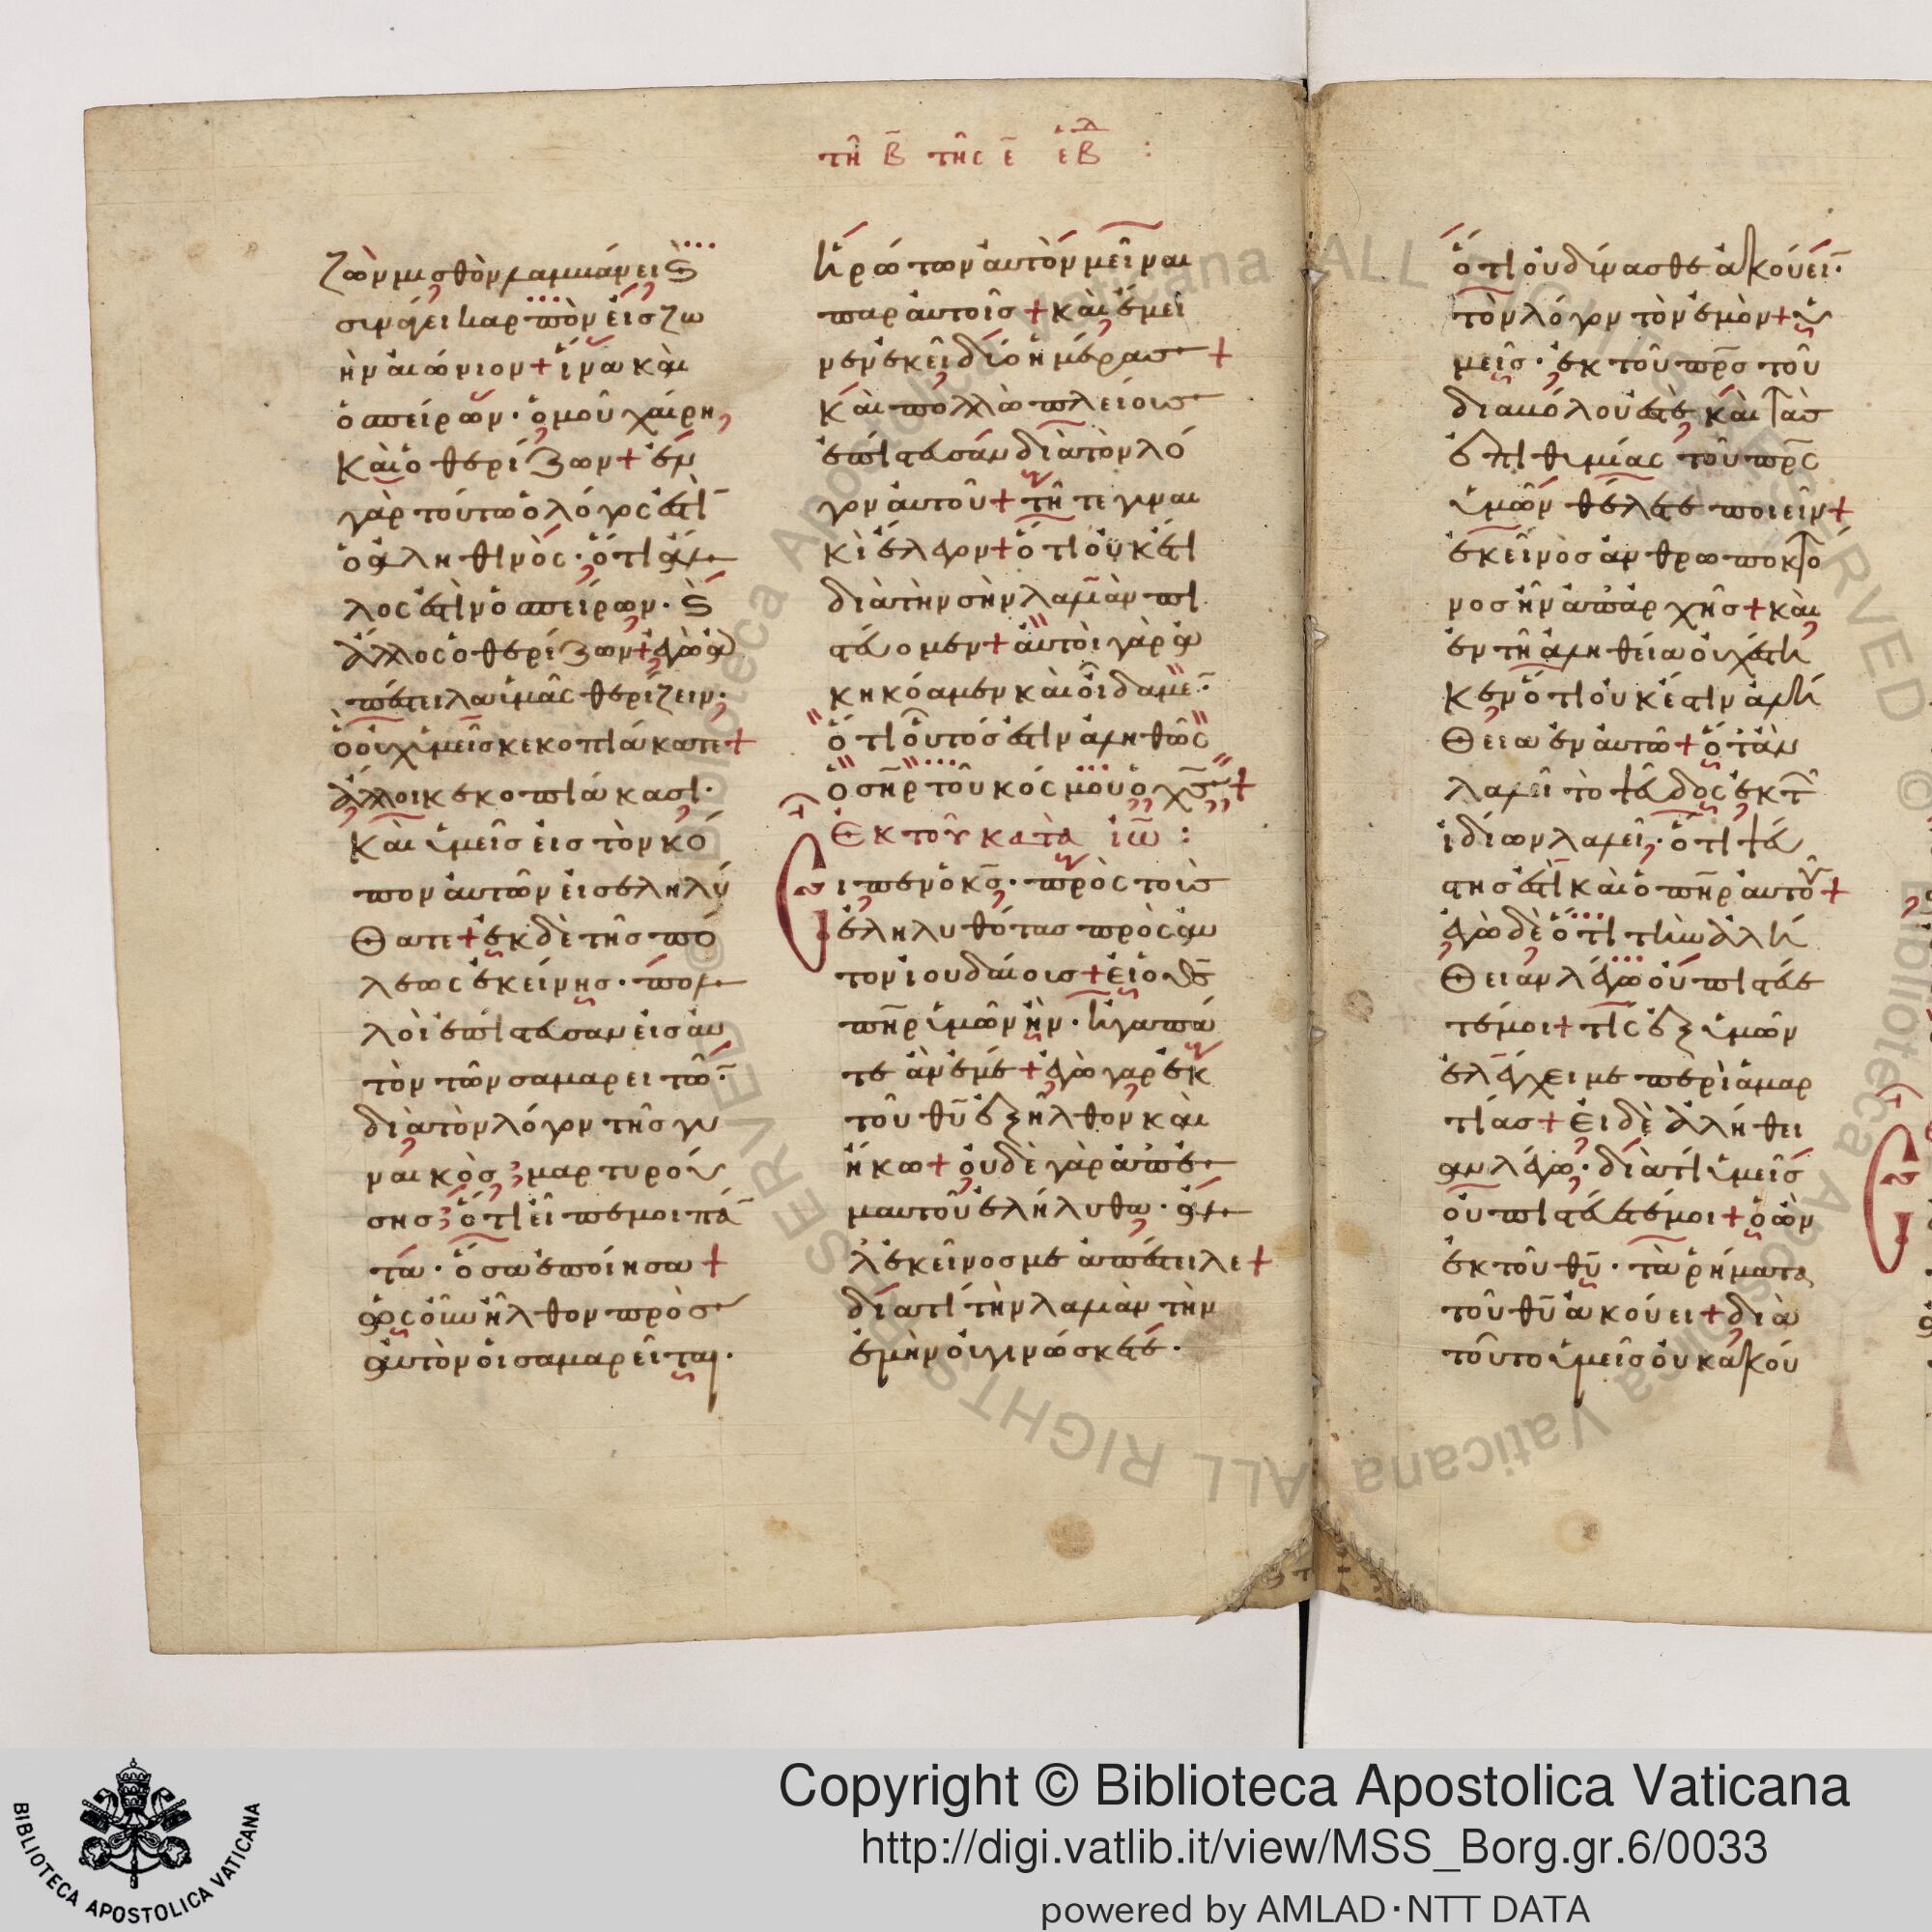 τῆ β̄ τῆς ε̄ ἑβδ :
ζων μισθὸν λαμβάνει Ϛ
συνάγει καρπὸν εἰς ζω
ὴν αἰώνιον + ἵνα καὶ
ὁ σπείρων · ὁμοῦ χαίρη
καὶ ὁ θερίζων + ἐν
γὰρ τούτω ὁ λόγος ἐστὶ̄
ὁ ἀληθινὸς · ὅτι ἄλ
λος ἐστὶν ὁ σπείρων · Ϛ
ἄλλος ὁ θερίζων + ἐγὼ ἀ
πέστειλα ὑμᾶς θερίζειν ·
ὃ οὐχ ὑμεῖς κεκοπιάκατε +
ἄλλοι κεκοπιάκασι ·
καὶ ὑμεῖς εἰς τὸν κό
πον αὐτῶν εἰσεληλύ
θατε + ἐκ δὲ τῆς πό
λεως ἐκείνης · πολ
λοὶ ἐπίστευσαν εἰς αὐ
τὸν τῶν σαμαρειτῶ̄ ·
διὰ τὸν λόγον τῆς γυ
ναικὸς μαρτυρού
σης ὅτι εἶπέ μοι πά̄
τα · ὅσα ἐποίησα +
ὡς οὖν ἦλθον πρὸς
αὐτὸν οἱ σαμαρεῖται ·
ἠρώτων αὐτὸν μεῖναι
παρ αὐτοῖς + καὶ ἔμει
νεν ἐκεῖ δύο ἡμέρας +
καὶ πολλῶ πλείους
ἐπίστευσαν διὰ τὸν λό
γον αὐτοῦ + τῆ τε γυναι
κὶ ἔλεγον + ὅτι οὐκέτι
διὰ τὴν σὴν λαλιὰν πι
στεύομεν + αὐτοὶ γὰρ ἀ
κηκόαμεν καὶ οἴδαμε̄ ·
ὅτι οὗτός ἐστιν ἀληθῶς
ὁ ση̄ρ τοῦ κόσμου ὁ χ̄ς +
ἐκ τοῦ κατὰ ἰω̄ :
Εἶπεν ὁ κ̄ς · πρὸς τοὺς
ἐληλυθότας πρὸς αὐ
τὸν ἰουδαίους + εἰ ὁ θ̄ς
πη̄ρ ὑμῶν ἦν · ἠγαπᾶ
τε ἂν ἐμέ + ἐγὼ γὰρ ἐκ
τοῦ θ̄υ ἐξῆλθον καὶ
ἥκω + οὐδὲ γὰρ ἀπ ἐ
μαυτοῦ ἐλήλυθα · ἀλ
λ ἐκεῖνος με ἀπέστειλε +
διατί τὴν λαλιὰν τὴν
ἐμὴν οὐ γινώσκετε ·
ὅτι οὐ δύνασθε ἀκούεῑ ·
τὸν λόγον τὸν ἐμὸν + ὑ
μεῖς · ἐκ τοῦ π̄ρς τοῦ
διαβόλου ἐστὲ καὶ τὰς
ἐπιθυμίας τοῦ π̄ρς
ὑμῶν θέλετε ποιεῖν +
ἐκεῖνος ἀνθρωποκτό
νος ἦν ἀπ ἀρχῆς + καὶ
ἐν τῆ ἀληθεία οὐχ ἕστη
κεν ὅτι οὐκ ἔστιν ἀλή
θεια ἐν αὐτῶ + ὅταν
λαλῆ τὸ ψεῦδος ἐκ τ̄
ἰδίων λαλεῖ · ὅτι ψεύ
στης ἐστὶ καὶ ὁ πη̄ρ αὐτοῦ +
ἐγὼ δὲ ὅτι τὴν ἀλή
θειαν λέγω οὐ πιστεύε
τέ μοι + τίς ἐξ ὑμῶν
ἐλέγχει με περὶ ἁμαρ
τίας + εἰ δὲ ἀλήθει
αν λέγω · διατί ὑμεῖς
οὐ πιστεύετέ μοι + ὁ ὢν
ἐκ τοῦ θ̄υ · τὰ ῥήματα
τοῦ θ̄υ ἀκούει + διὰ
τοῦτο ὑμεῖς οὐκ ἀκού
Copyright © Biblioteca Apostolica Vaticana
http://digi.vatlib.it/view/MSS_Borg.gr.6/0033
powered by AMLAD·NTT DATA
BIBLIOTECA APOSTOLICA VATICANA